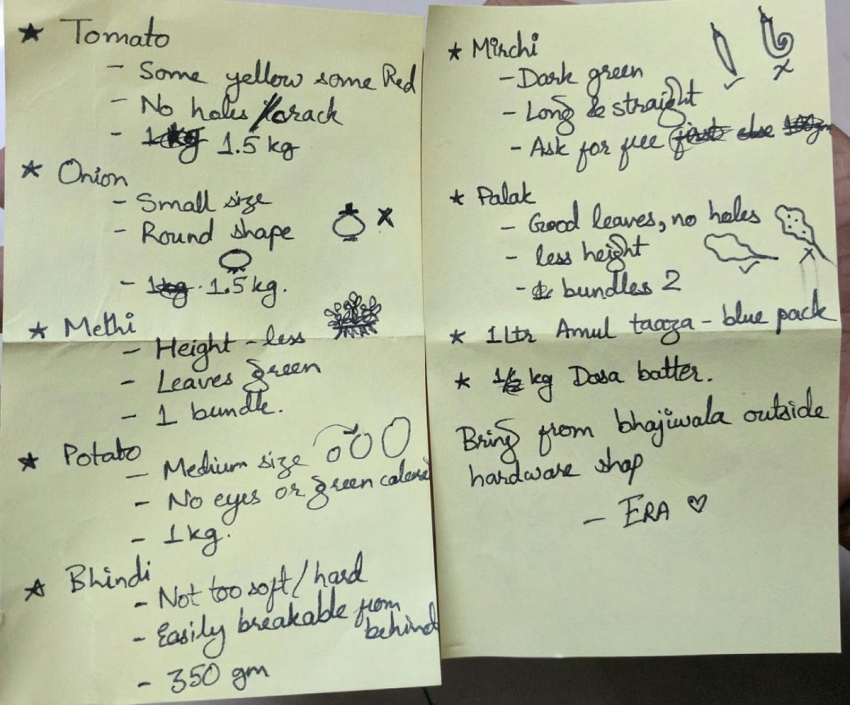 ★ Tomato
- Some yellow some Red
- No holes / crack
- 1 kg 1.5 kg
★ Onion
- Small size
- Round shape
- 1kg. 1.5 kg.
★ Methi
- Height - less
- Leaves green
- 1 bundle.
★ Potato
- Medium size
- No eyes or green colored
- 1 kg.
★ Bhindi
- Not too soft / hard
- Easily breakable from
behind
- 350 gm
★ Mirchi
- Dark green
- Long & straight
- Ask for free first else 100gm
★ Palak
- Good leaves, no holes
- less height
- bundles 2
★ 1 ltr Amul taaza - blue pack
★ 1/2 kg Dosa batter.
Bring from bhajiwala outside
hardware shop
- ERA ♡